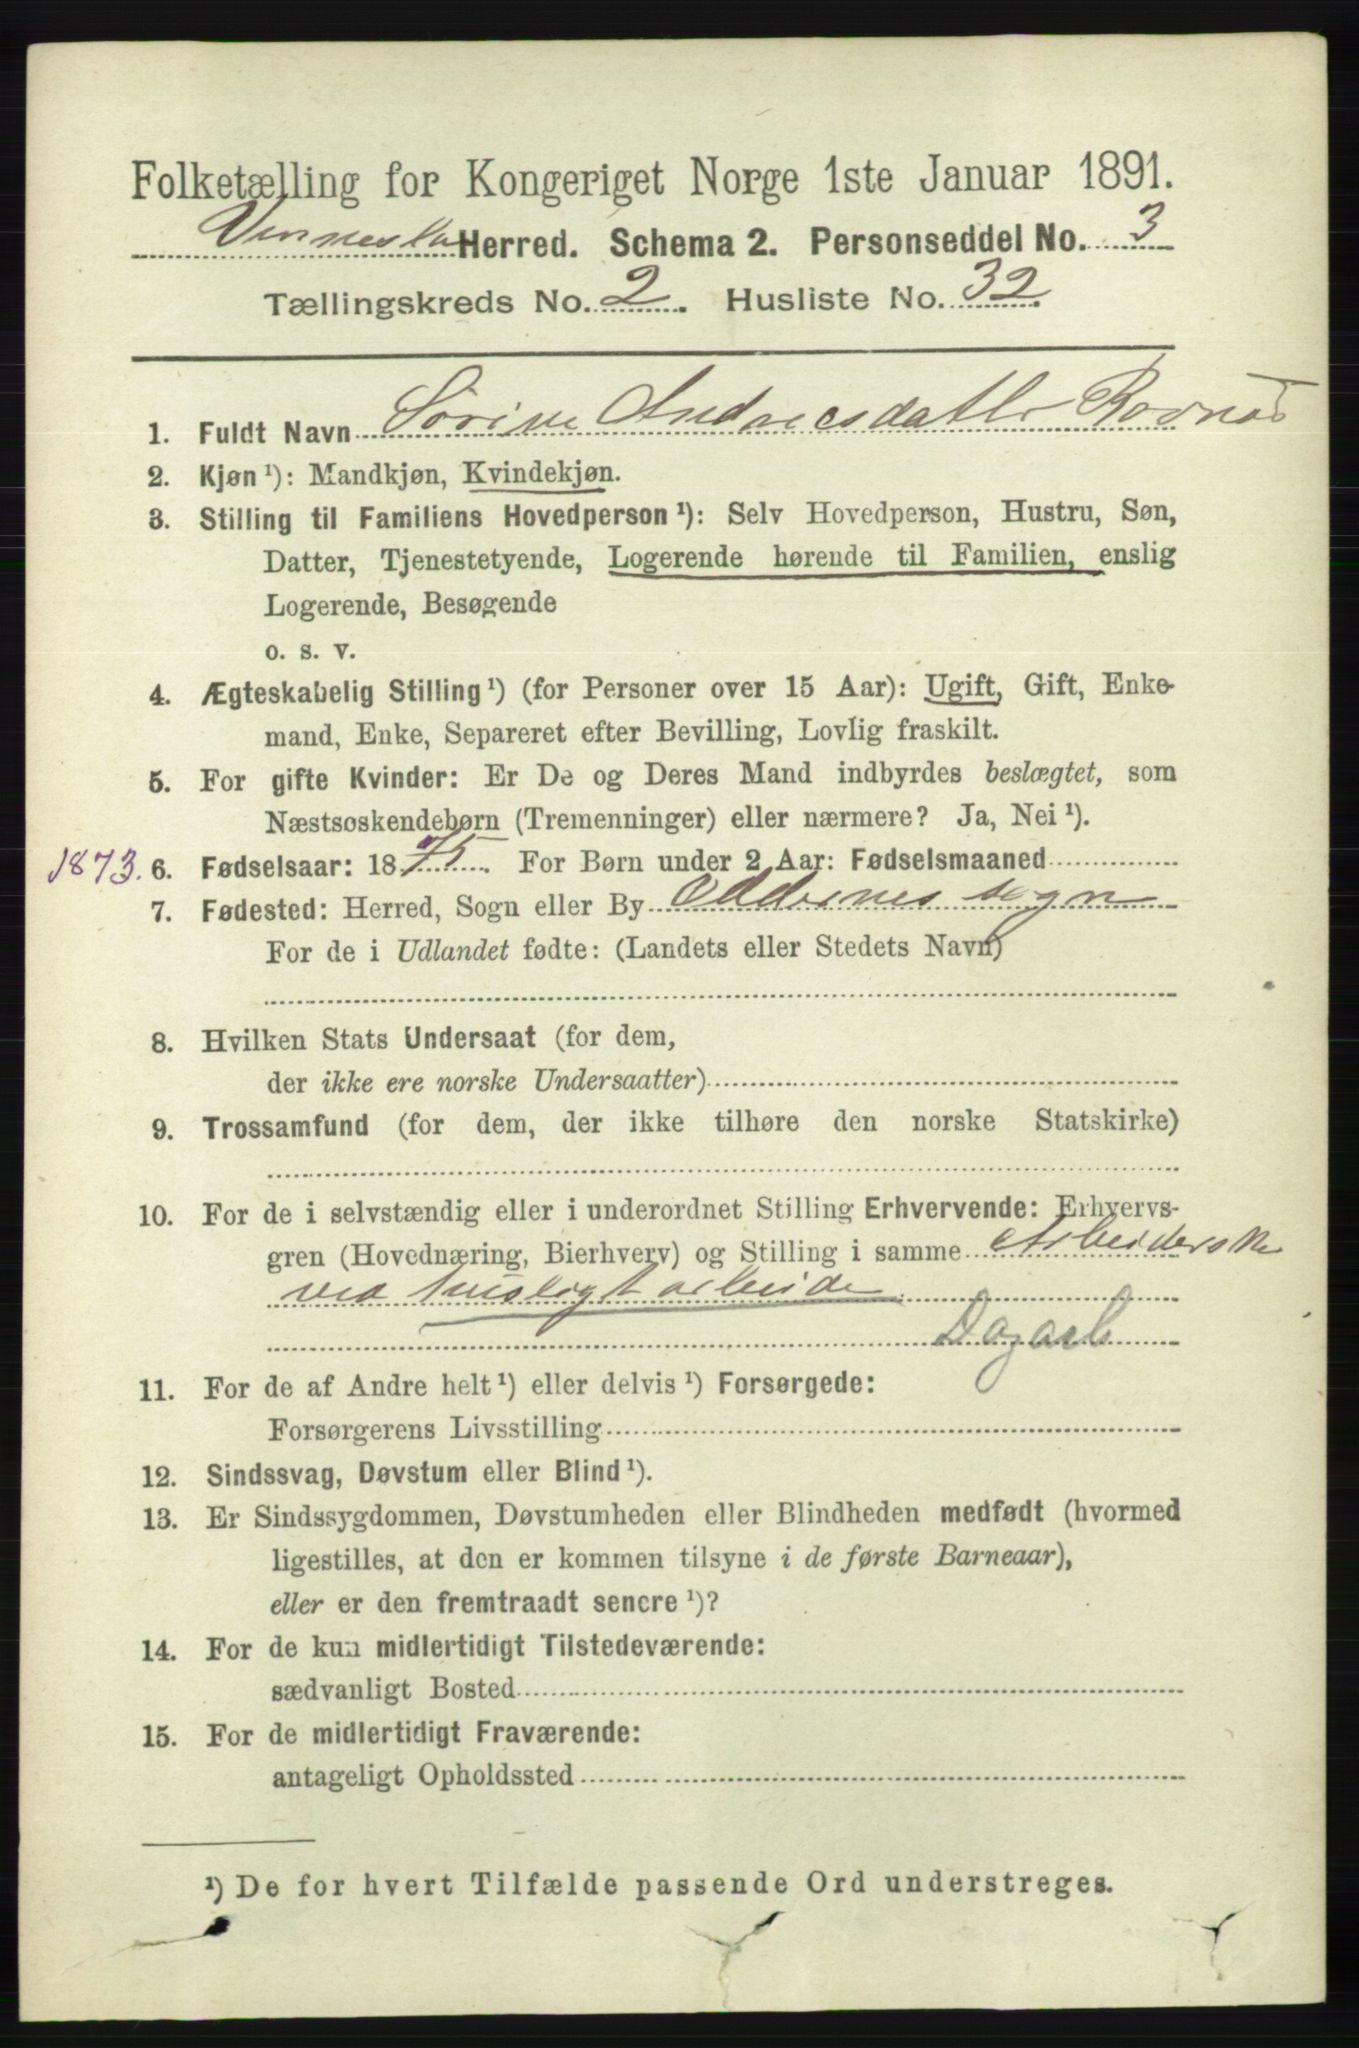 Folketælling for Kongeriget Norge 1ste Januar 1891.
Vennesla Herred. Schema 2. Personseddel No. 3
Tællingskreds No. 2. Husliste No. 32.
1. Fuldt Navn Sørine Andreasdatter
2. Kjøn ¹): Mandkjøn, Kvindekjøn.
3. Stilling til Familiens Hovedperson ¹): Selv Hovedperson, Hustru, Søn,
Datter, Tjenestetyende, Logerende hørende til Familien, enslig
Logerende, Besøgende
o. s. v.
4. Ægteskabelig Stilling ¹) (for Personer over 15 Aar): Ugift, Gift, Enke-
mand, Enke, Separeret efter Bevilling, Lovlig fraskilt.
5. For gifte Kvinder: Er De og Deres Mand indbyrdes beslægtet, som
Næstsøskendebørn (Tremenninger) eller nærmere? Ja, Nei ¹).
1873. 6. Fødselsaar: 1875. For Børn under 2 Aar: Fødselsmaaned
7. Fødested: Herred, Sogn eller By Oddernes sogn
For de i Udlandet fødte: (Landets eller Stedets Navn)
8. Hvilken Stats Undersaat (for dem,
der ikke ere norske Undersaatter)
9. Trossamfund (for dem, der ikke tilhøre den norske Statskirke)
10. For de i selvstændig eller i underordnet Stilling Erhvervende: Erhvervs-
gren (Hovednæring, Bierhverv) og Stilling i samme Arbeiderske
ved husligt arbeide
Dagarb
11. For de af Andre helt ¹) eller delvis ¹) Forsørgede:
Forsørgerens Livsstilling
12. Sindssvag, Døvstum eller Blind ¹).
13. Er Sindssygdommen, Døvstumheden eller Blindheden medfødt (hvormed
ligestilles, at den er kommen tilsyne i de første Barneaar),
eller er den fremtraadt senere ¹)?
14. For de kun midlertidigt Tilstedeværende:
sædvanligt Bosted
15. For de midlertidigt Fraværende:
antageligt Opholdssted
¹) De for hvert Tilfælde passende Ord understreges.